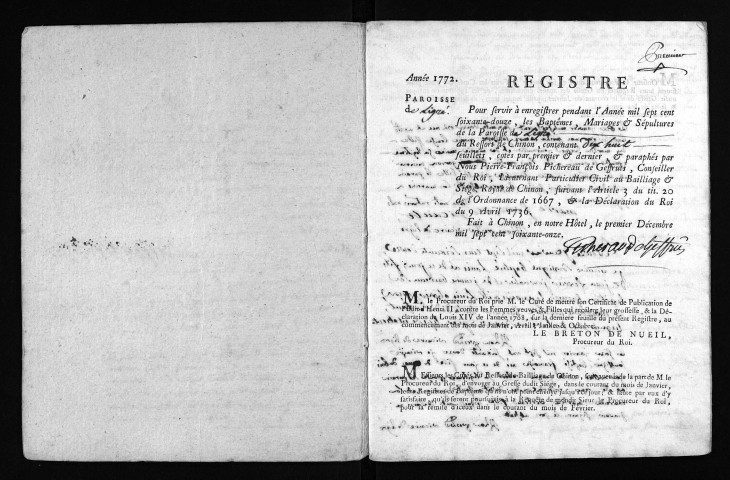 Premier
Année 1772.
REGISTRE
PAROISSE
de Ligré.
Pour servir à enregistrer pendant l'Année mil sept cent
soixante-douze, les Baptêmes, Mariages & Sépultures
de la Paroisse de Ligré
du Ressort de Chinon, contenant dix huit
feuillets, cotés par premier & dernier, & paraphés par
Nous Pierre-François Pichereau de Geffrus, Conseiller
du Roi, Lieutenant Particulier Civil au Bailliage &
Siége Royal de Chinon, suivant l'Article 3 du tit. 20
de l'Ordonnance de 1667, & la Déclaration du Roi
du 9 Avril 1736.
Fait à Chinon, en notre Hôtel, le premier Décembre
mil sept cent soixante-onze.
Pichereau de Geffrus
M. le Procureur du Roi prie M. le Curé de mettre son Certificat de Publication de
l'Edit d'Henri II contre les Femmes veuves & Filles qui recélent leur grossesse, & la Dé-
claration de Louis XIV de l'année 1708, sur la derniere feuille du présent Registre, au
commencement des mois de Janvier, Avril, Juillet & Octobre.
LE BRETON DE NUEIL,
Procureur du Roi.
Messieurs les Curés du Ressort du Bailliage de Chinon, sont de la part de M. le
Procureur du Roi, d'envoyer au Greffe dudit Siége, dans le courant du mois de Janvier,
les Registres de Baptêmes jusqu'à ce jour; & faute par eux d'y
satisfaire, qu'ils seront poursuivis à la Requête de mondit Sieur le Procureur du Roi,
pour la remise d'iceux dans le courant du mois de Février.